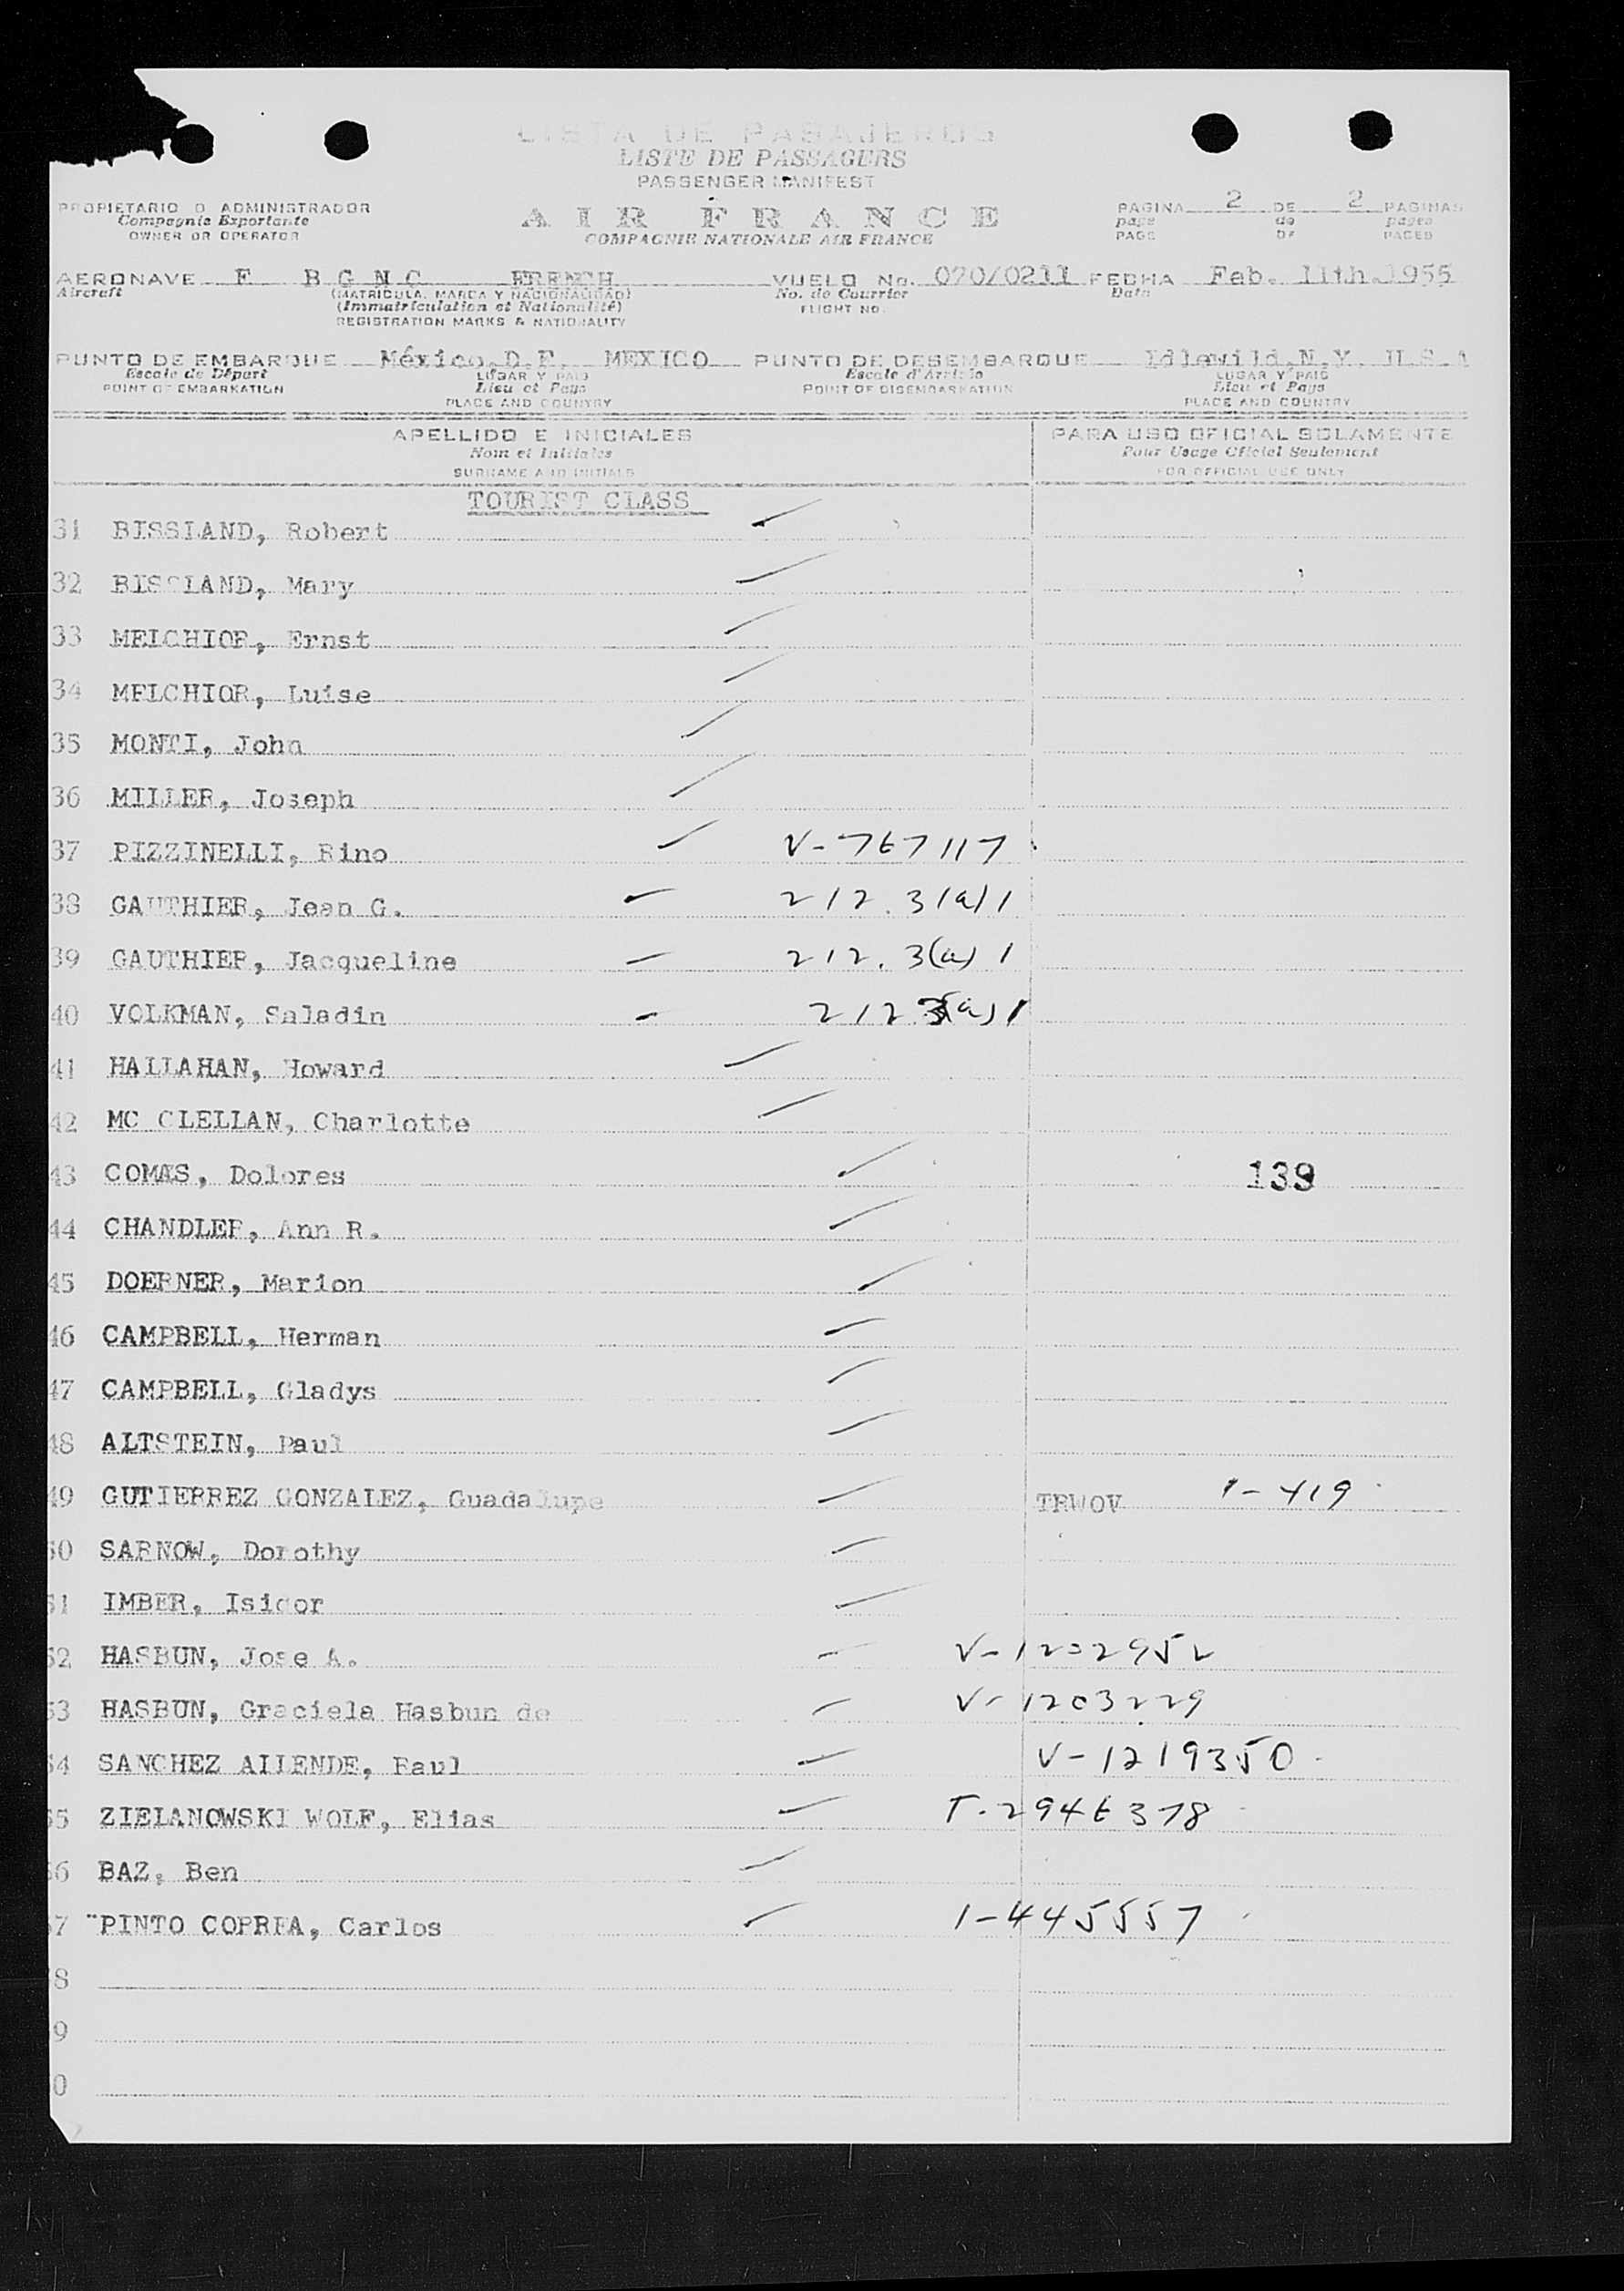 LISTA DE PASAJEROS
LISTE DE PASSAGERS
PASSENGER MANIFEST
PROPIETARIO O ADMINISTRADOR
Compagnie Exportante
OWNER OR OPERATOR
AIR FRANCE
COMPAGNIE NATIONALE AIR FRANCE
PAGINA 2 DE 2 PAGINAS
page de pages
PAGE OF PAGES
AERONAVE F BGNC FRENCH VUELO No. 070/0211 FECHA Feb. 11th.1955
Aircraft (MATRICULA, MARCA Y NACIONALIDAD) No. de Courrier Date
(Immatriculation et Nationalité) FLIGHT NO.
REGISTRATION MARKS & NATIONALITY
PUNTO DE EMBARQUE México,D.F. MEXICO PUNTO DE DESEMBARQUE Idlewild,N.Y. U.S.A
Escale de Départ LUGAR Y PAIS Escale d'Arrivée LUGAR Y PAIS
POINT OF EMBARKATION Lieu et Pays POINT OF DISEMBARKATION Lieu et Pays
PLACE AND COUNTRY PLACE AND COUNTRY
APELLIDO E INICIALES PARA USO OFICIAL SOLAMENTE
Nom et Initiales Pour Usage Officiel Seulement
SURNAME AND INITIALS FOR OFFICIAL USE ONLY
TOURIST CLASS
31 BISSLAND, Robert
32 BISSLAND, Mary
33 MELCHIOR, Ernst
34 MELCHIOR, Luise
35 MONTI, John
36 MILLER, Joseph
37 PIZZINELLI, Rino V-767117
38 GAUTHIER, Jean G. 212.3(a)1
39 GAUTHIER, Jacqueline 212.3(a)1
40 VOLKMAN, Saladin 212 3(a)1
41 HALLAHAN, Howard
42 MC CLELLAN, Charlotte
43 COMAS, Dolores 139
44 CHANDLER, Ann R.
45 DOERNER, Marion
46 CAMPBELL, Herman
47 CAMPBELL, Gladys
48 ALTSTEIN, Paul
49 GUTIERREZ GONZALEZ, Guadalupe TRWOV 1-419
50 SARNOW, Dorothy
51 IMBER, Isidor
52 HASBUN, Jose A. V-1202952
53 HASBUN, Graciela Hasbun de V-1203229
54 SANCHEZ ALLENDE, Raul V-1219350
55 ZIELANOWSKI WOLF, Elias T-2946378
56 BAZ, Ben
57 PINTO CORREA, Carlos 1-445557
8
9
0